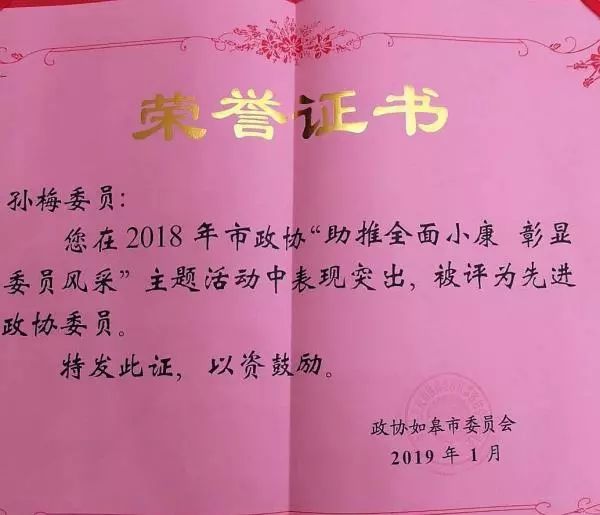 荣誉证书
孙梅委员：
您在2018年市政协“助推全面小康 彰显
委员风采”主题活动中表现突出，被评为先进
政协委员。
特发此证，以资鼓励。
政协如皋市委员会
2019年1月